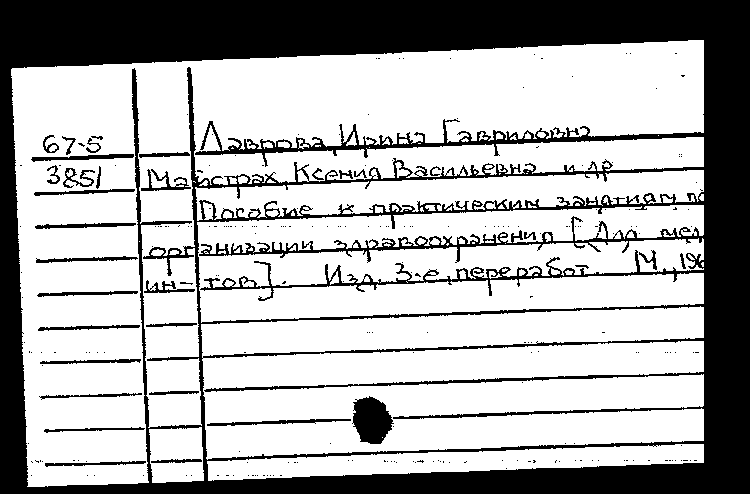 67-5 Лаврова, Ирина Гавриловна
3851 Майстрах, Ксения Васильевна и др
Пособие к практическим занятиям по
организации здравоохранения [Для мед.
ин-тов]. Изд. 3-е, переработ. М., 196